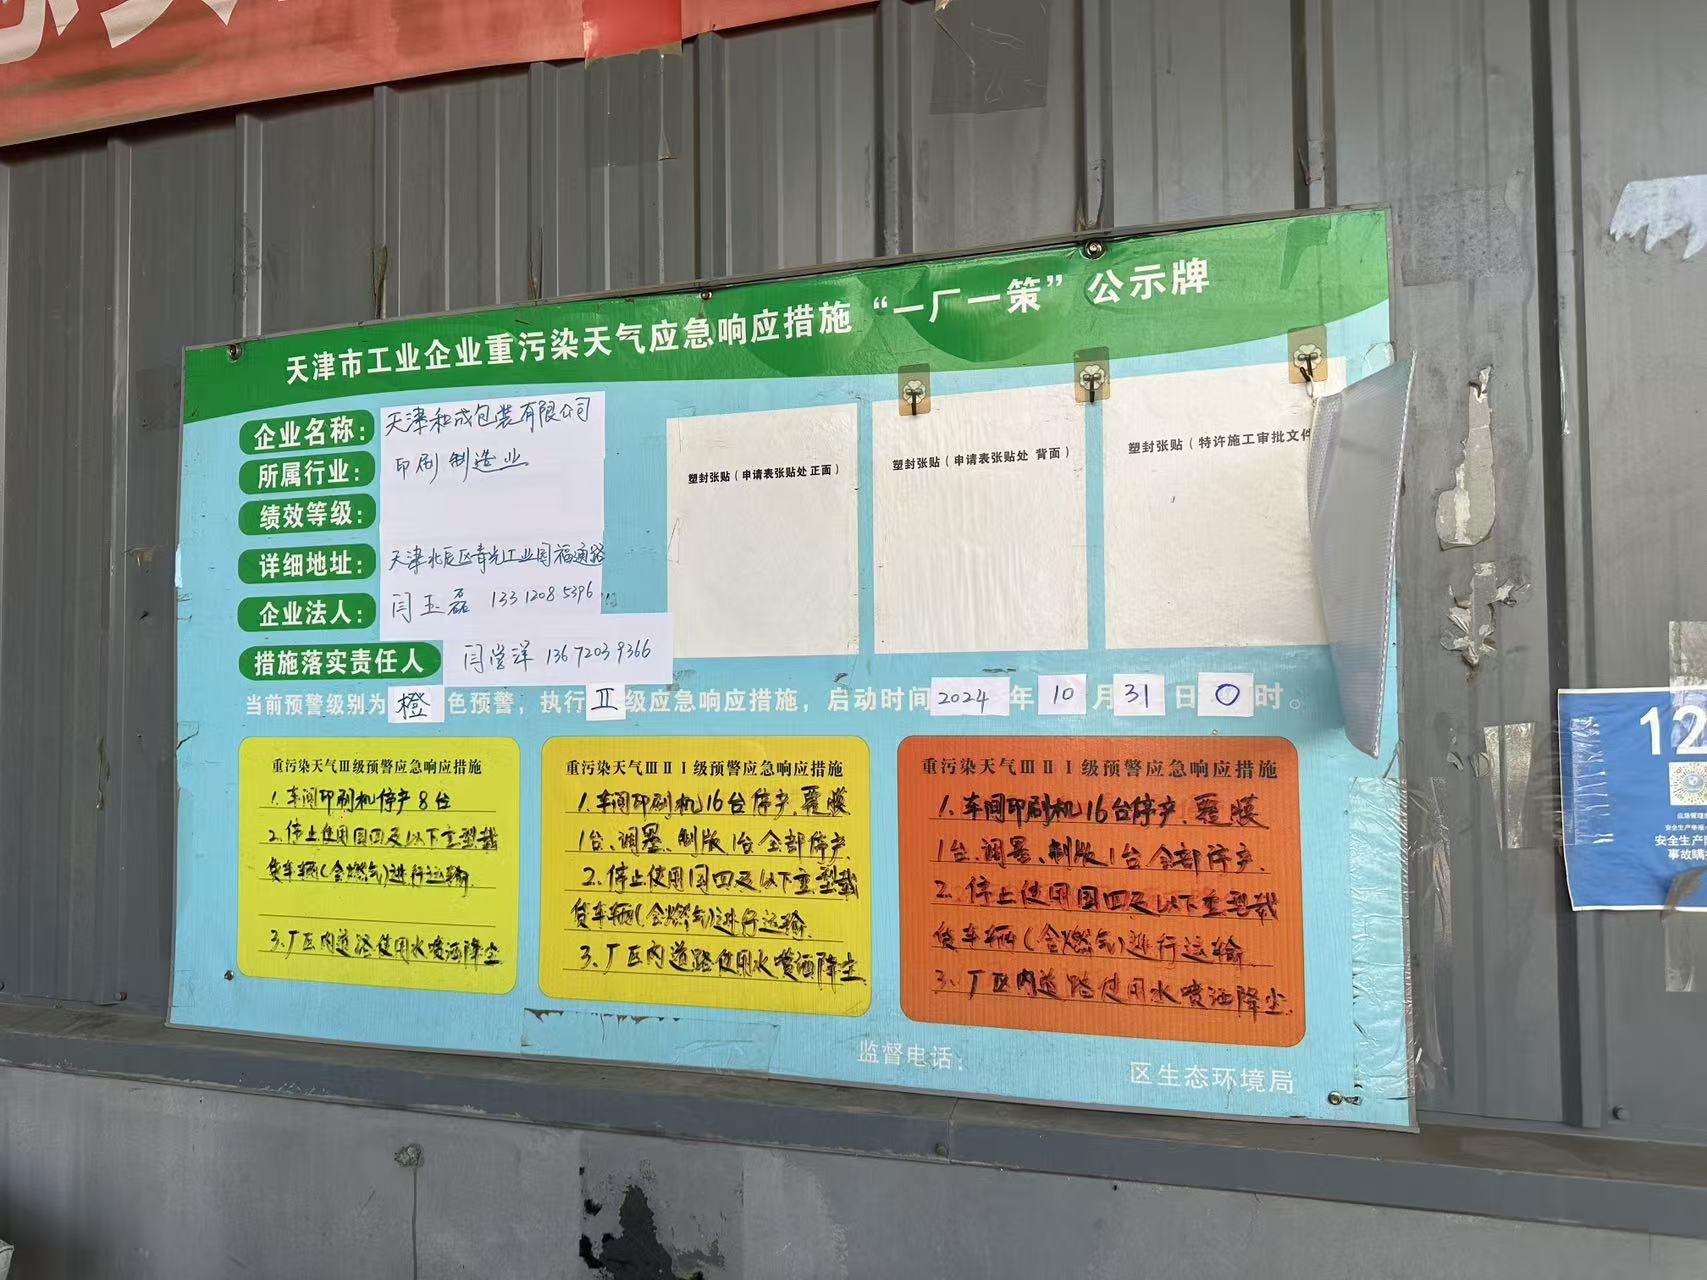 天津市工业企业重污染天气应急响应措施“一厂一策”公示牌
企业名称: 天津和成包装有限公司
所属行业: 印刷制造业
绩效等级:
详细地址: 天津北辰区青光工业园福通路
企业法人: 闫玉磊 13312085396
措施落实责任人 闫学洋 13672039366
塑封张贴(申请表张贴处 正面)
塑封张贴(申请表张贴处 背面)
塑封张贴(特许施工审批文件
当前预警级别为橙色预警,执行Ⅱ级应急响应措施,启动时间2024年10月31日0时。
重污染天气Ⅲ级预警应急响应措施
1.车间印刷机停产8台
2.停止使用国四及以下重型载
货车辆(含燃气)进行运输
3.厂区内道路使用水喷洒降尘
重污染天气ⅢⅡⅠ级预警应急响应措施
1.车间印刷机16台停产.覆膜
1台、调墨、制版1台全部停产.
2.停止使用国四及以下重型载
货车辆(含燃气)进行运输.
3、厂区内道路使用水喷洒降尘
重污染天气ⅢⅡⅠ级预警应急响应措施
1.车间印刷机16台停产.覆膜
1台、调墨、制版1台全部停产
2.停止使用国四及以下重型载
货车辆(含燃气)进行运输
3、厂区内道路使用水喷洒降尘.
监督电话:
区生态环境局
12
安全生产
事故瞒